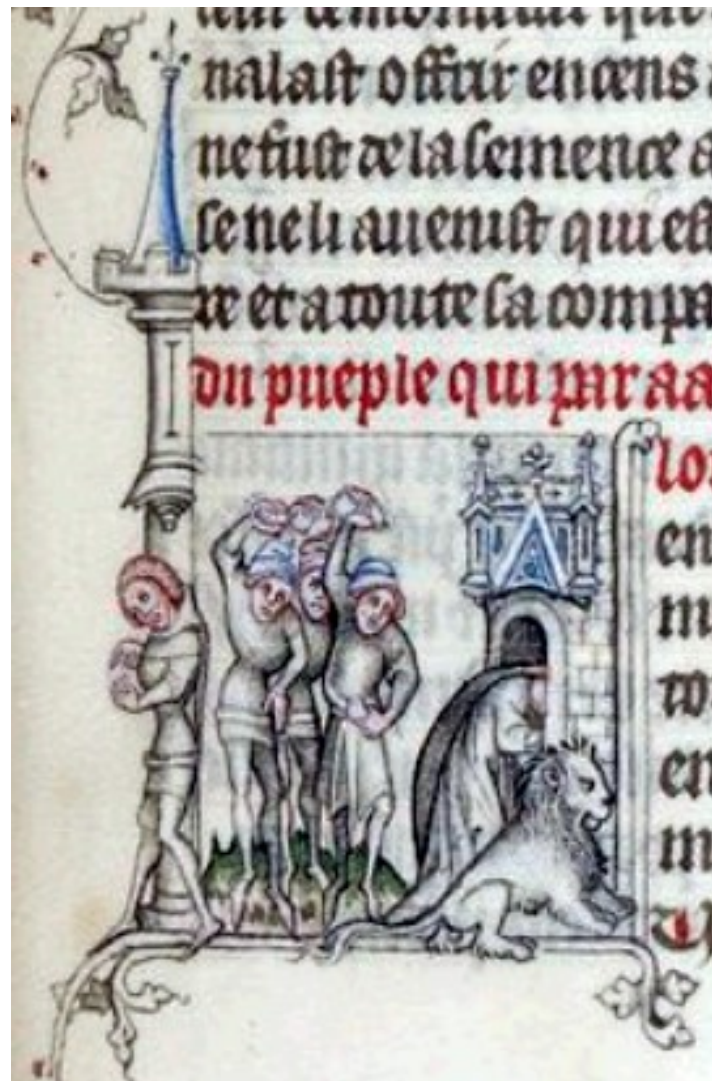 nalast offrir encens
ne fust de la semence a
se ne li avenist qui est
re et a toute sa compa
du pueple qui par aa
lo
en
m
to
en
m